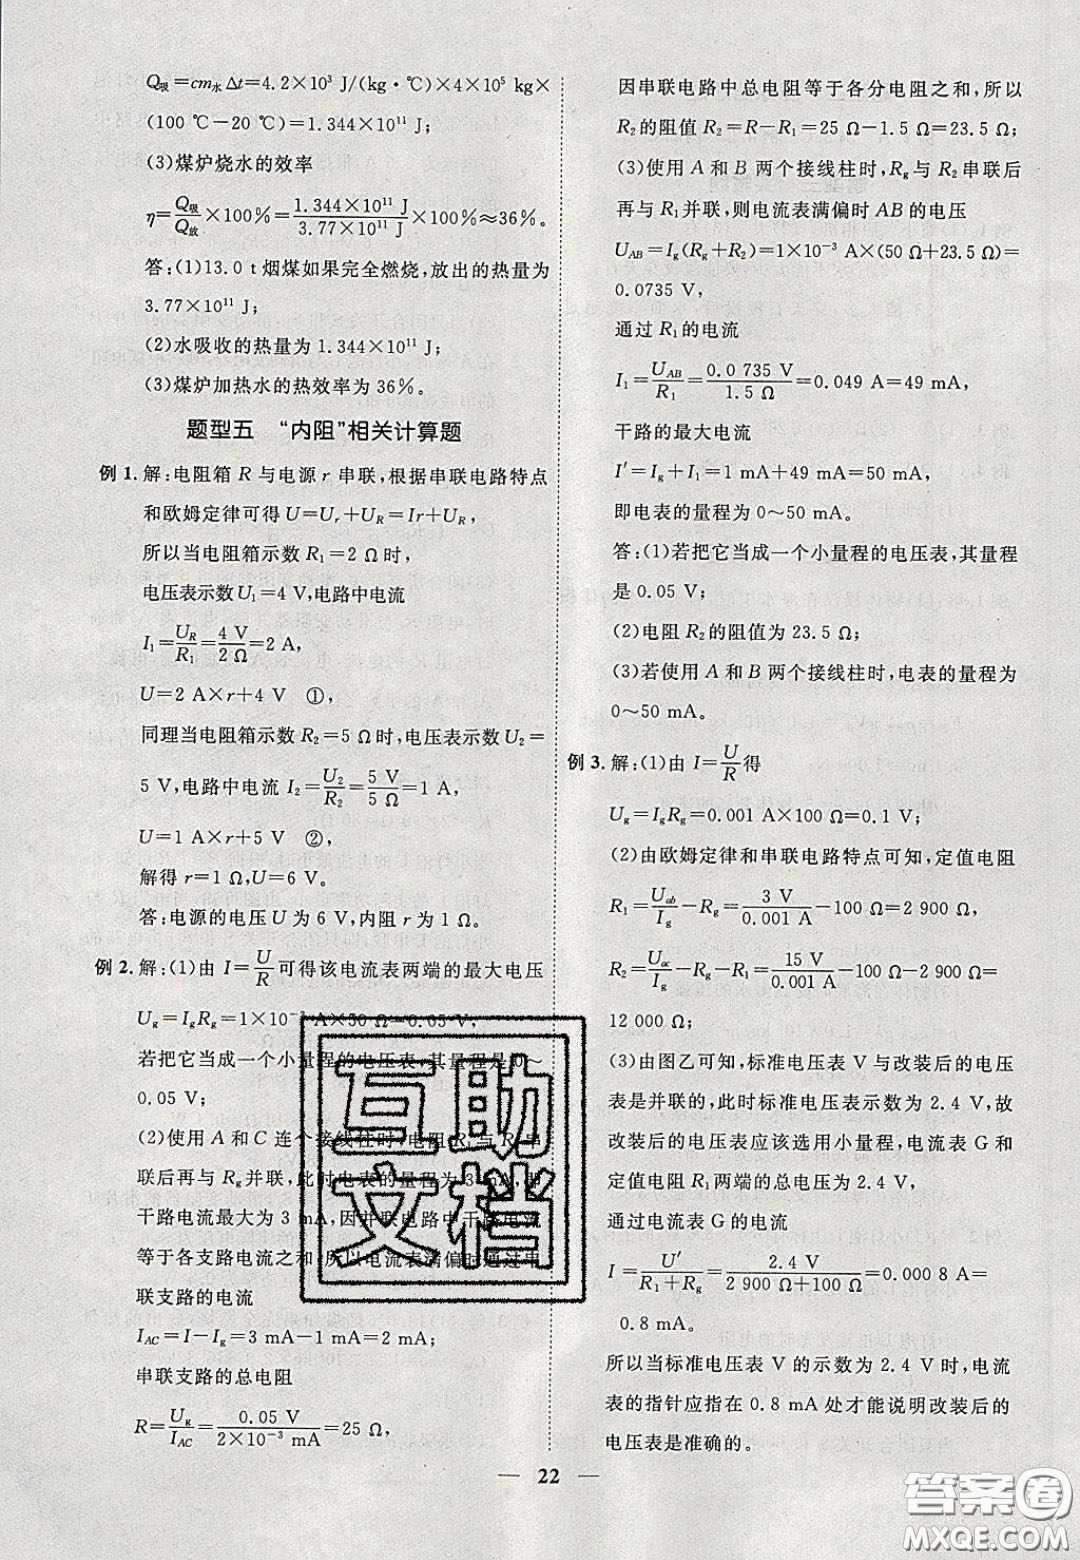 Q吸=cm水Δt=4.2×10³ J/(kg·℃)×4×10⁵ kg×
(100 ℃-20 ℃)=1.344×10¹¹ J;
(3)煤炉烧水的效率
η=Q吸/Q放×100%=1.344×10¹¹ J/3.77×10¹¹ J×100%≈36%。
答:(1)13.0 t 烟煤如果完全燃烧,放出的热量为
3.77×10¹¹ J;
(2)水吸收的热量为 1.344×10¹¹ J;
(3)煤炉加热水的热效率为 36%。
题型五 “内阻”相关计算题
例 1. 解:电阻箱 R 与电源 r 串联,根据串联电路特点
和欧姆定律可得 U=Uᵣ+U_R=Ir+U_R,
所以当电阻箱示数 R₁=2 Ω时,
电压表示数 U₁=4 V,电路中电流
I₁=U_R/R₁=4 V/2 Ω=2 A,
U=2 A×r+4 V ①,
同理当电阻箱示数 R₂=5 Ω时,电压表示数 U₂=
5 V,电路中电流 I₂=U₂/R₂=5 V/5 Ω=1 A,
U=1 A×r+5 V ②,
解得 r=1 Ω,U=6 V。
答:电源的电压 U 为 6 V,内阻 r 为 1 Ω。
例 2. 解:(1)由 I=U/R可得该电流表两端的最大电压
U_g=I_gR_g=1×10⁻³ A×50 Ω=0.05 V,
若把它当成一个小量程的电压表,其量程是 0~
0.05 V;
(2)使用 A 和 C 连个接线柱时,电阻 R₁ 与 R 串
联后再与 R_g 并联,此时电表的量程为 3 mA,即
干路电流最大为 3 mA,因并联电路中干路电流
等于各支路电流之和,所以电流表满偏时通过串
联支路的电流
I_AC=I-I_g=3 mA-1 mA=2 mA;
串联支路的总电阻
R=U_g/I_AC=0.05 V/2×10⁻³ mA=25 Ω,
因串联电路中总电阻等于各分电阻之和,所以
R₂ 的阻值 R₂=R-R₁=25 Ω-1.5 Ω=23.5 Ω;
(3)使用 A 和 B 两个接线柱时,R_g 与 R₂ 串联后
再与 R₁ 并联,则电流表满偏时 AB 的电压
U_AB=I_g(R_g+R₂)=1×10⁻³ A×(50 Ω+23.5 Ω)=
0.0735 V,
通过 R₁ 的电流
I₁=U_AB/R₁=0.0 735 V/1.5 Ω=0.049 A=49 mA,
干路的最大电流
I′=I_g+I₁=1 mA+49 mA=50 mA,
即电表的量程为 0~50 mA。
答:(1)若把它当成一个小量程的电压表,其量程
是 0.05 V;
(2)电阻 R₂ 的阻值为 23.5 Ω;
(3)若使用 A 和 B 两个接线柱时,电表的量程为
0~50 mA。
例 3. 解:(1)由 I=U/R得
U_g=I_gR_g=0.001 A×100 Ω=0.1 V;
(2)由欧姆定律和串联电路特点可知,定值电阻
R₁=U_ab/I_g-R_g=3 V/0.001 A-100 Ω=2 900 Ω,
R₂=U_ac/I_g-R_g-R₁=15 V/0.001 A-100 Ω-2 900 Ω=
12 000 Ω;
(3)由图乙可知,标准电压表 V 与改装后的电压
表是并联的,此时标准电压表示数为 2.4 V,故
改装后的电压表应该选用小量程,电流表 G 和
定值电阻 R₁ 两端的总电压为 2.4 V,
通过电流表 G 的电流
I=U′/R₁+R_g=2.4 V/2 900 Ω+100 Ω=0.000 8 A=
0.8 mA,
所以当标准电压表 V 的示数为 2.4 V时,电流
表的指针应指在 0.8 mA 处才能说明改装后的
电压表是准确的。
互助
文档
22
答案圈
MXQE.COM